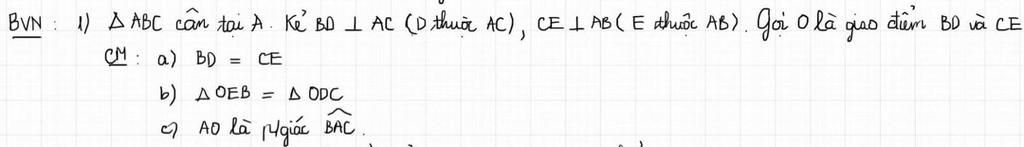 BVN : 1) △ ABC cân tại A. Kẻ BD ⊥ AC (D thuộc AC), CE ⊥ AB (E thuộc AB). Gọi O là giao điểm BD và CE
CM : a) BD = CE
b) △ OEB = △ ODC
c) AO là p/giác \widehat{BAC}.